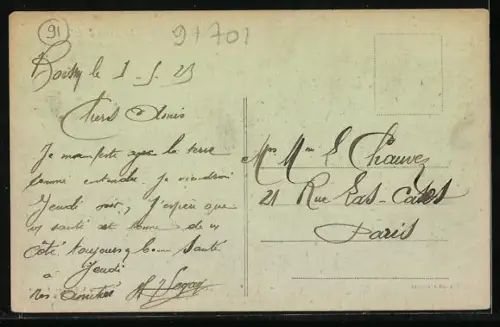 91
91701
Boissy le 1-5-23
Chers Amis
Je manifeste que la terre
comme entendu. Je viendrai
Jeudi soir, J'espère que
la santé est bonne de
côté toujours bonne santé
à Jeudi
Mes amitiés
Mr Mme L Chauvez
21 Rue Las-Cases
Paris